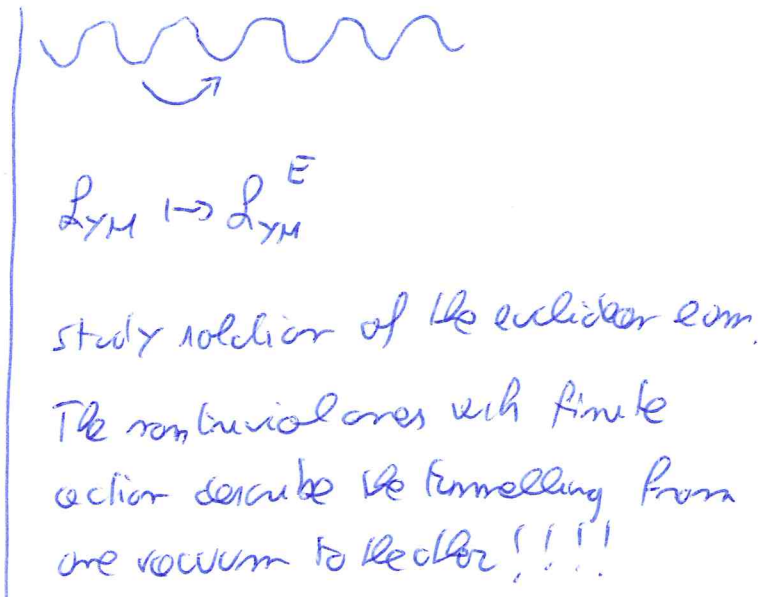 L_YM ↦ L_YM^E
study solution of the euclidean eom.
The nontrivial ones with finite
action describe the tunnelling from
one vacuum to the other!!!!